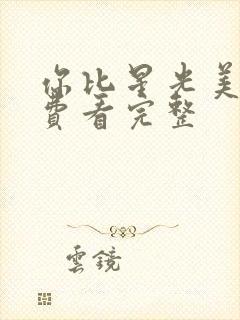 你比星光美
費看完整
雲鏡